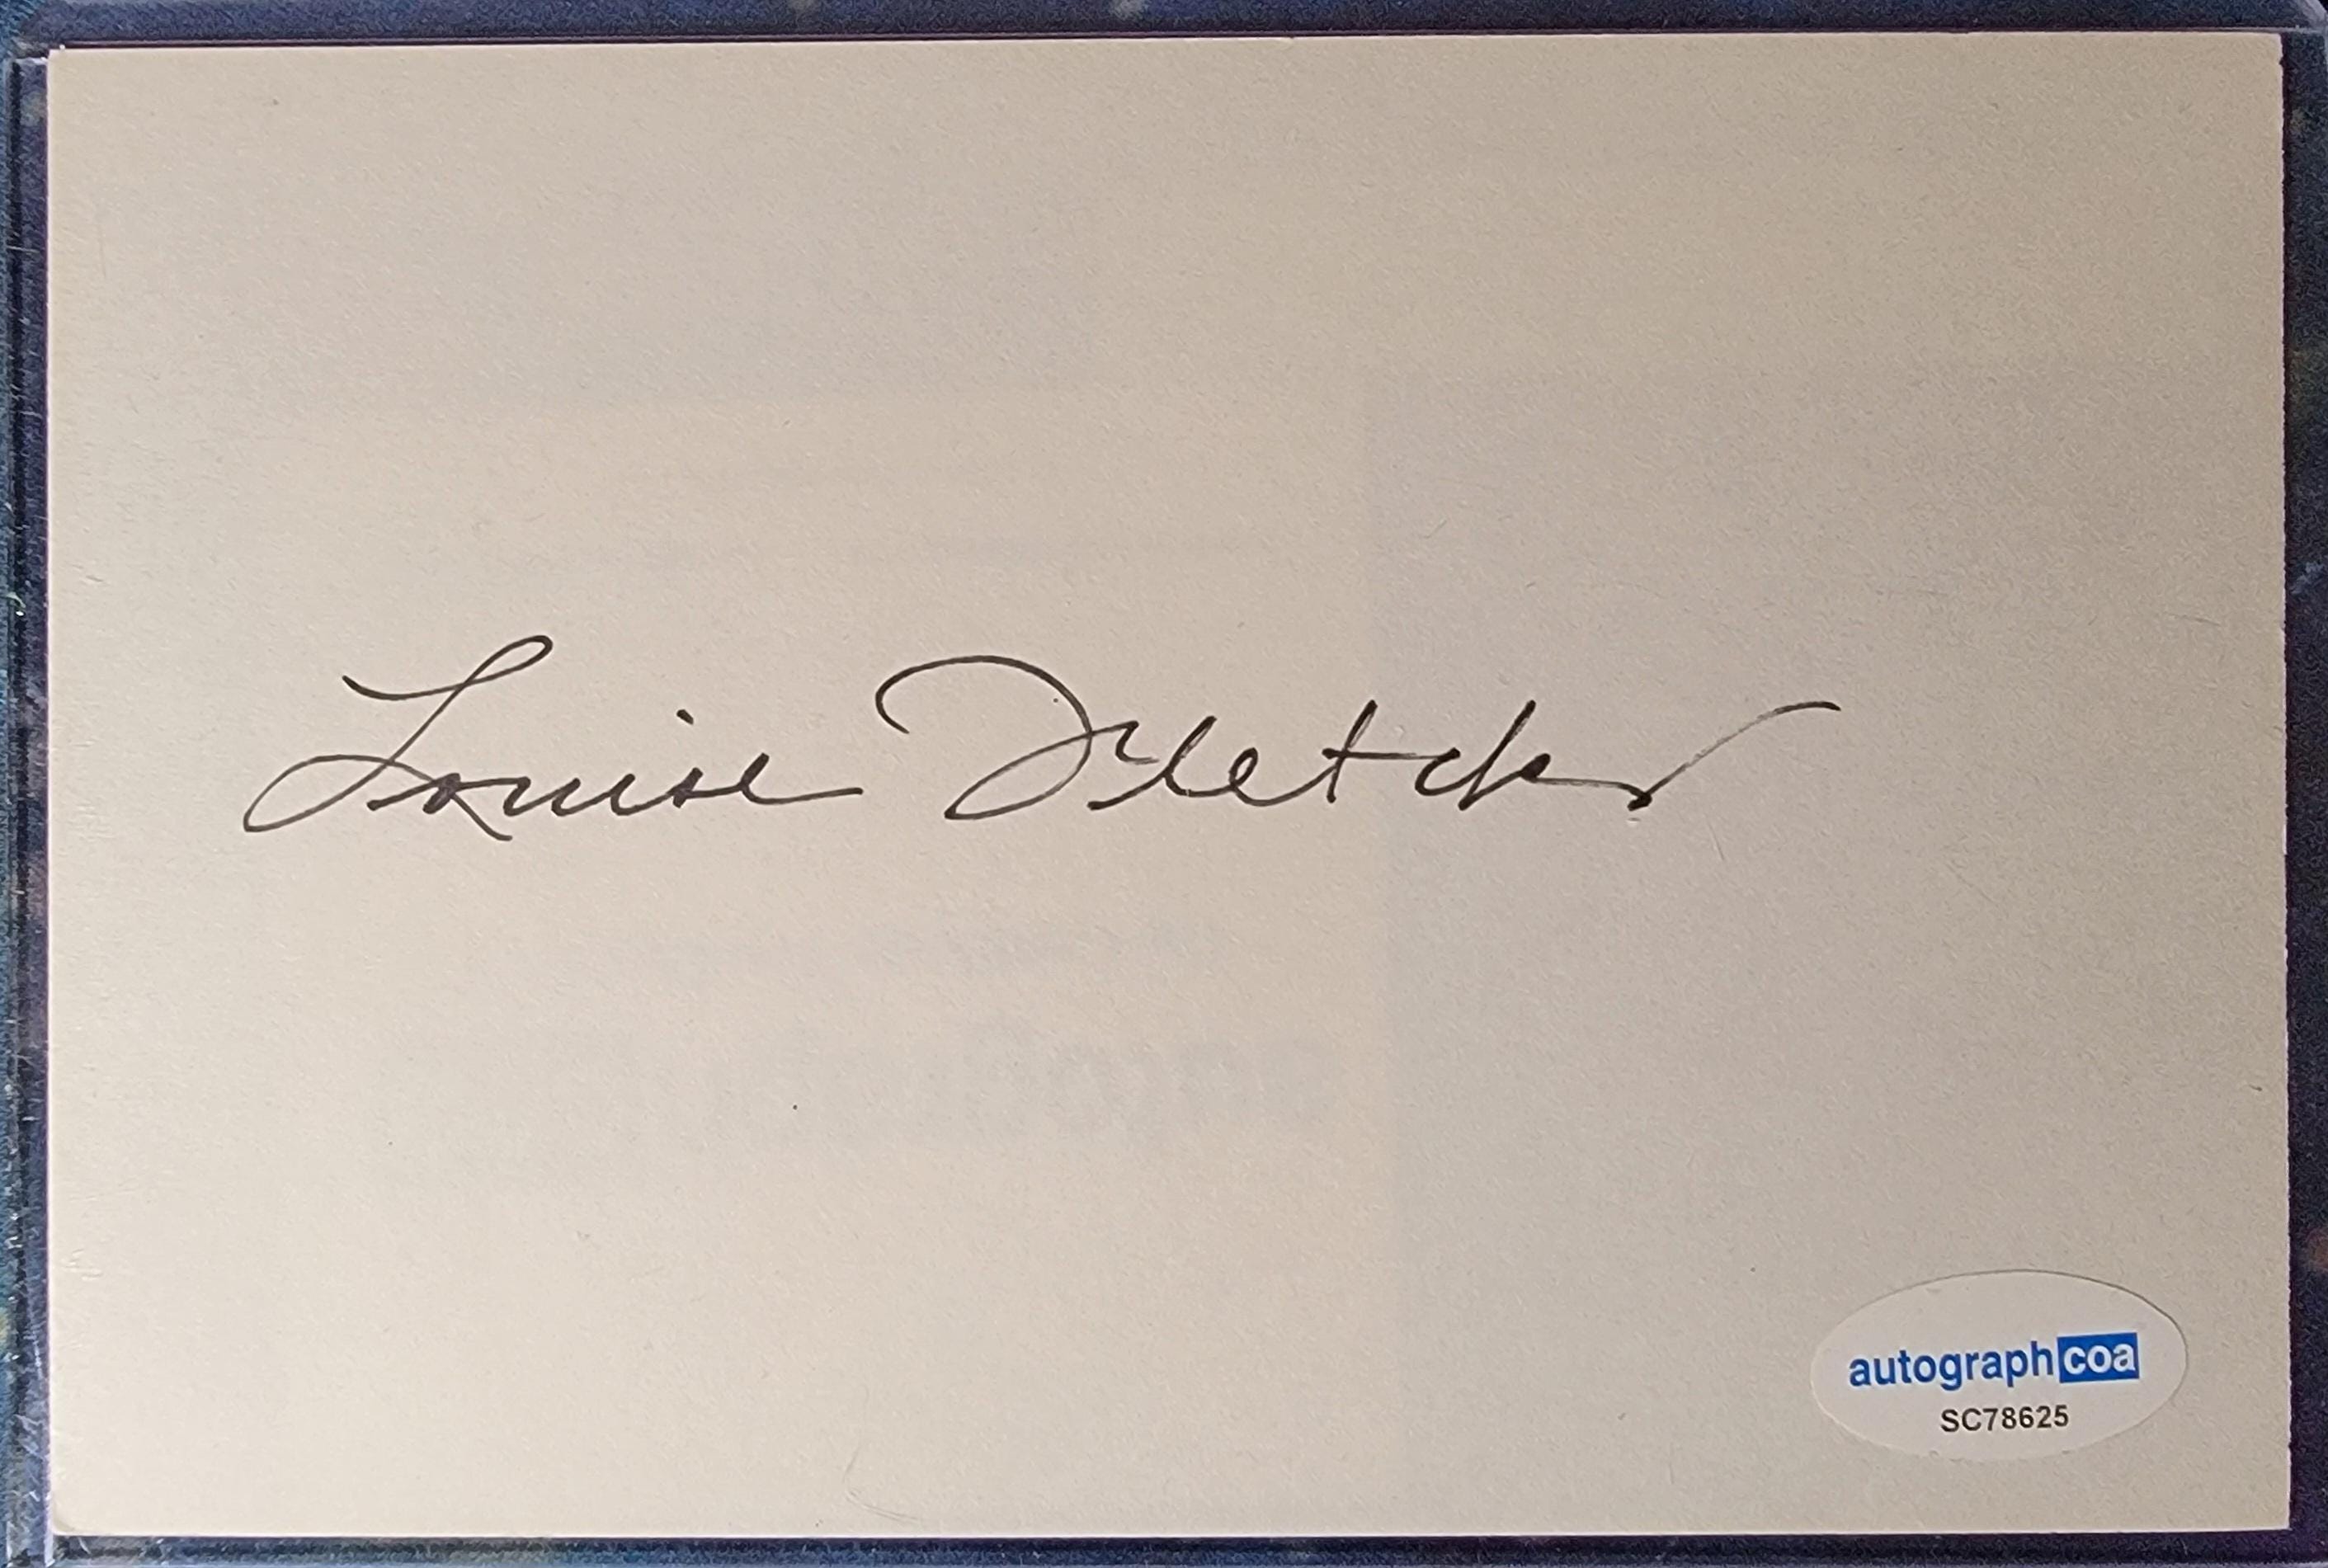 Louise Fletcher
autographcoa
SC78625